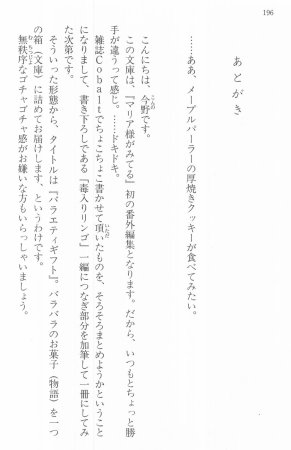 196
あとがき
……ああ、メープルパーラーの厚焼きクッキーが食べてみたい。
こんにちは、今野です。
この文庫は、『マリア様がみてる』初の番外編集となります。だから、いつもとちょっと勝
手が違うって感じ。……ドキドキ。
雑誌Cobaltでちょこちょこ書かせて頂いたものを、そろそろまとめようかということ
になりまして、書き下ろしである『毒入りリンゴ』一編につなぎ部分を加筆して一冊にしてみ
た次第です。
そういった形態から、タイトルは『バラエティギフト』。バラバラのお菓子（物語）を一つ
の箱（文庫）に詰めてお届けします、というわけです。
無秩序なゴチャゴチャ感がお嫌いな方もいらっしゃいましょう。